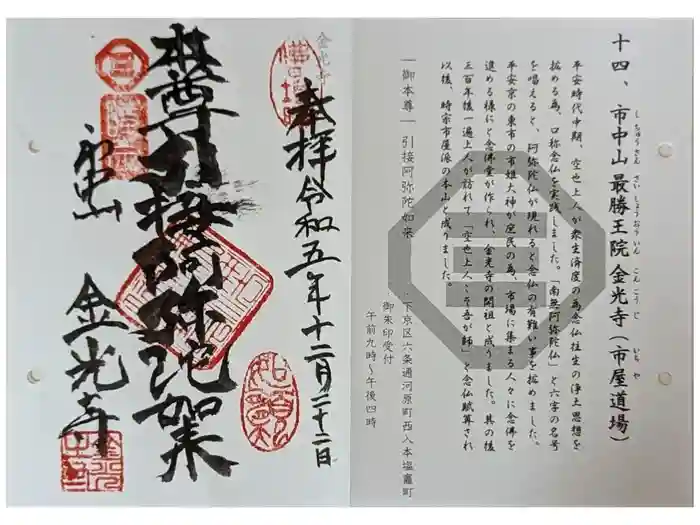 十四、市中山 最勝王院 金光寺(市屋道場)
しちゅうさん さいしょうおういん こんこうじ いちや
平安時代中期、空也上人が衆生済度の為念仏往生の浄土思想を
拡める為、口称念仏を実践しました。「南無阿弥陀仏」と六字の名号
を唱えると、阿弥陀仏が現れると念仏の有難い事を拡めました。
平安京の東市の市姫大神が庶民の為、市場に集まる人々に念佛を
進める様にと念佛堂が作られ、金光寺の開祖と成りました。其の後
三百年後一遍上人が訪れて「空也上人こそ吾が師」と念仏賦算され
以後、時宗市屋派の本山と成りました。
―御本尊― 引接阿弥陀如来
下京区六条通河原町西入本塩竈町
御朱印受付
午前九時～午後四時
金光寺
奉拝 令和五年十二月二十二日
本尊引接阿弥陀如来
市中山 金光寺